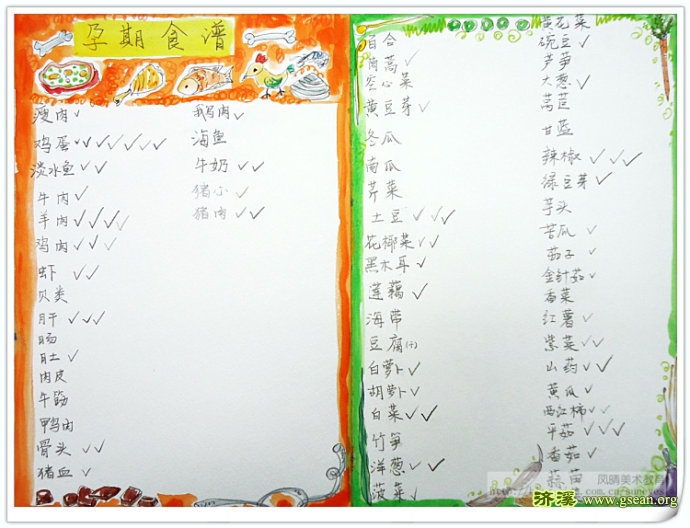 孕期食谱
瘦肉 ✓
鸡蛋 ✓✓✓✓✓✓
淡水鱼 ✓✓
牛肉 ✓
羊肉 ✓✓✓✓
鸡肉 ✓✓✓
虾 ✓✓
贝类
肝 ✓✓✓
肠
肚 ✓
肉皮
牛筋
鸭肉
骨头 ✓✓
猪血 ✓
鹅肉 ✓
海鱼
牛奶 ✓✓
猪心 ✓
猪肉 ✓✓
百合
茼蒿 ✓
空心菜
黄豆芽 ✓
冬瓜
南瓜
芹菜
土豆 ✓✓✓
花椰菜 ✓✓
黑木耳 ✓
莲藕 ✓
海带
豆腐(干)
白萝卜 ✓
胡萝卜 ✓
白菜 ✓✓
竹笋
洋葱 ✓✓
菠菜 ✓
黄花菜
豌豆 ✓
芦笋
大葱 ✓
莴苣
甘蓝
辣椒 ✓✓✓
绿豆芽 ✓
芋头
苦瓜 ✓
茄子 ✓
金针菇 ✓
香菜
红薯 ✓
紫菜 ✓✓
山药 ✓✓
黄瓜 ✓
西红柿 ✓✓
平菇 ✓✓✓
香菇 ✓
蒜苗
风晴美术教育
济溪
www.gsean.org